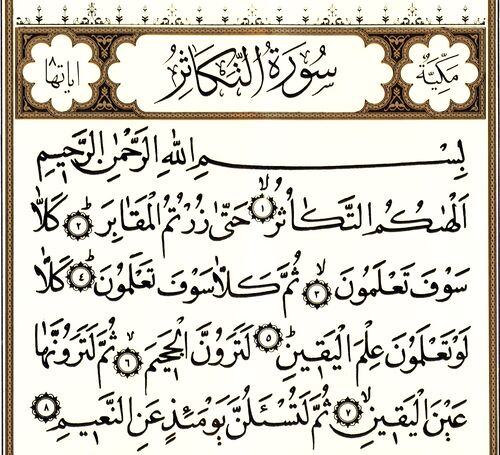 مكية سورة التكاثر اياتها ٨
بِسْمِ اللهِ الرَّحْمٰنِ الرَّحِيمِ
اَلْهٰيكُمُ التَّكَاثُرُ ۙ ١ حَتّٰى زُرْتُمُ الْمَقَابِرَ ۜ ٢ كَلَّا
سَوْفَ تَعْلَمُونَ ۙ ٣ ثُمَّ كَلَّا سَوْفَ تَعْلَمُونَ ۜ ٤ كَلَّا
لَوْ تَعْلَمُونَ عِلْمَ الْيَقِينِ ۜ ٥ لَتَرَوُنَّ الْجَحِيمَ ۙ ٦ ثُمَّ لَتَرَوُنَّهَا
عَيْنَ الْيَقِينِ ۙ ٧ ثُمَّ لَتُسْـَٔلُنَّ يَوْمَئِذٍ عَنِ النَّعِيمِ ٨